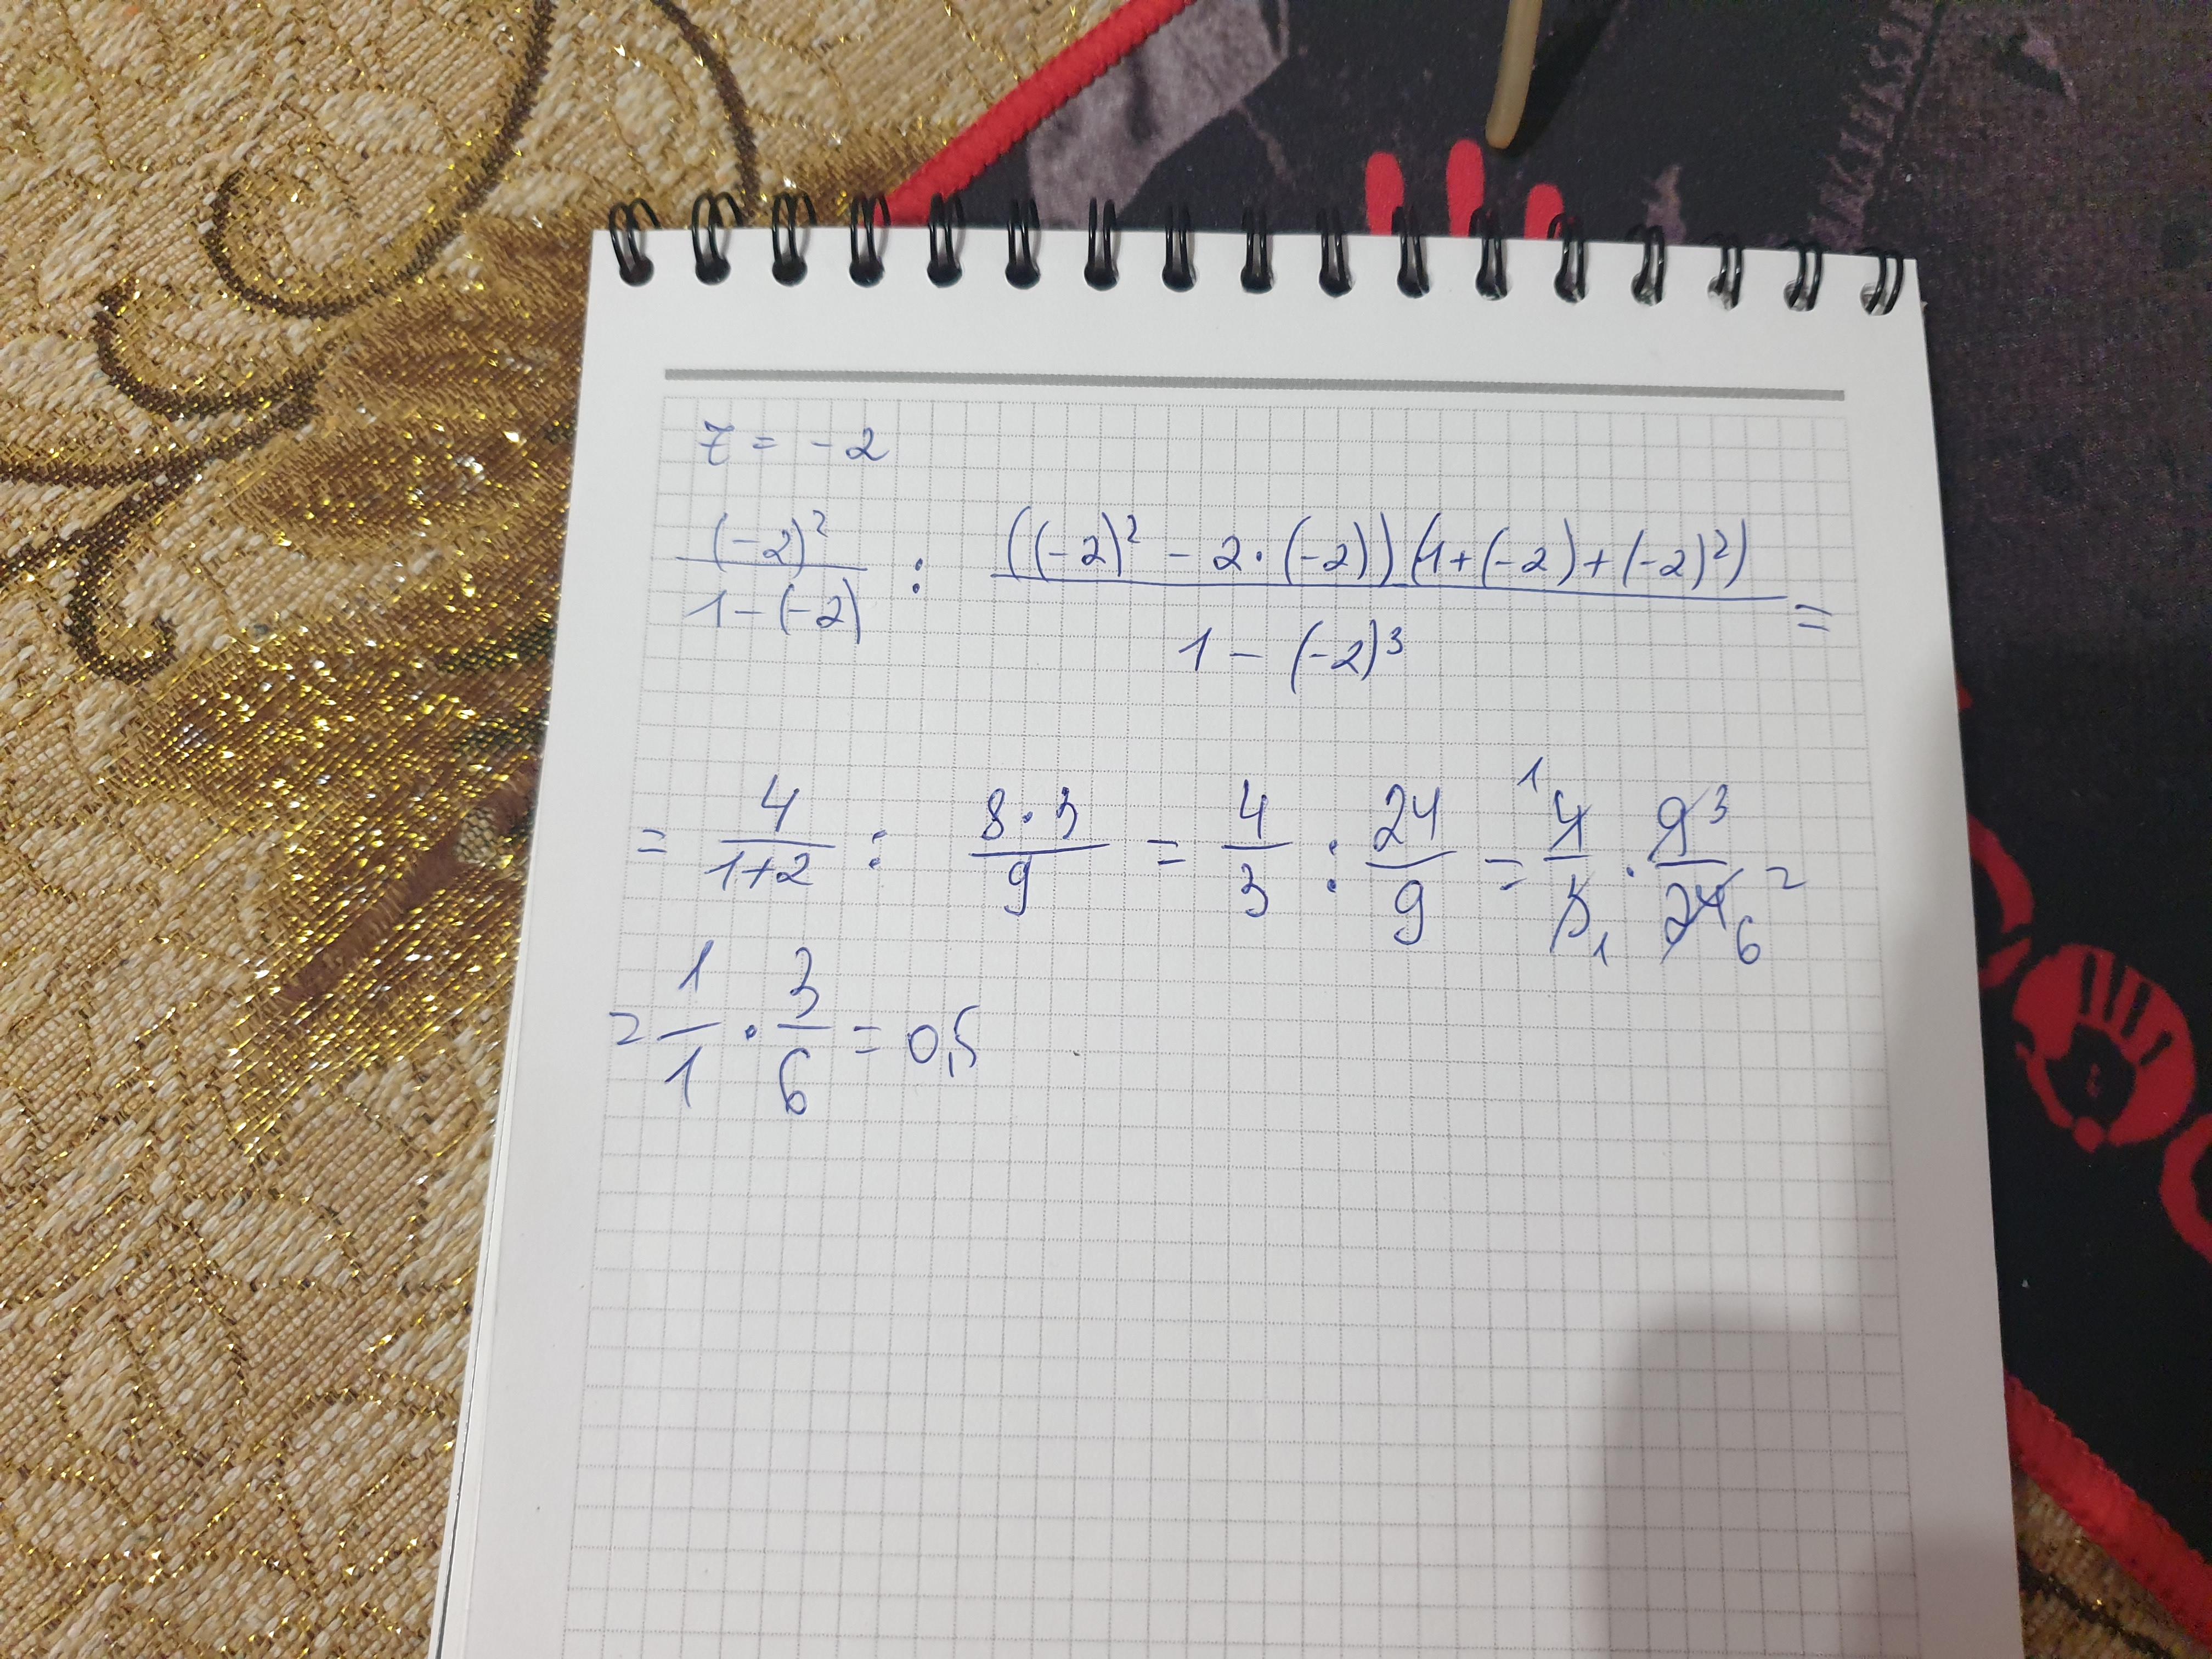 z = -2
(-2)² / 1-(-2) : ((-2)² - 2·(-2))(1+(-2)+(-2)²) / 1-(-2)³ =
= 4 / 1+2 : 8·3 / 9 = 4/3 : 24/9 = ¹4/3₁ · 9³/24₆ =
= 1/1 · 3/6 = 0,5